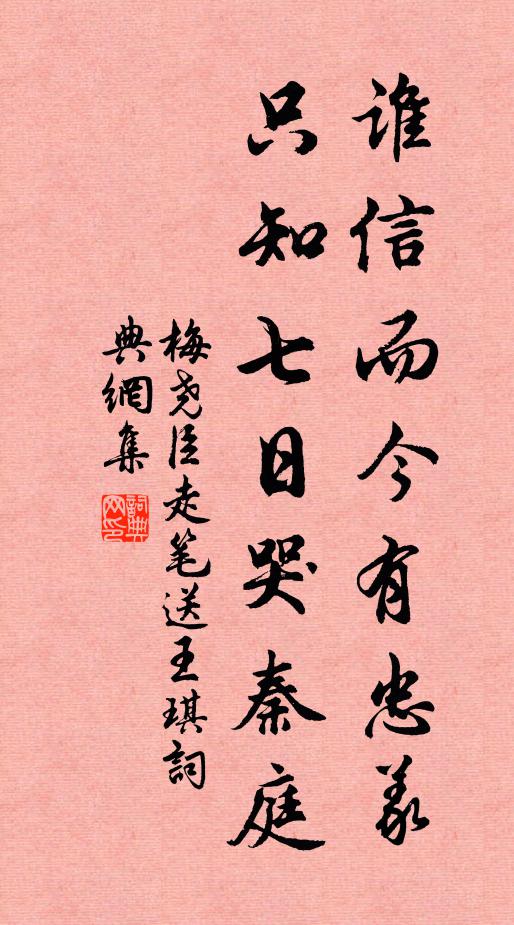 谁信而今有忠義
只知七日哭秦庭
梅尧臣走笔送王琪詞
典網集
詞典
网印